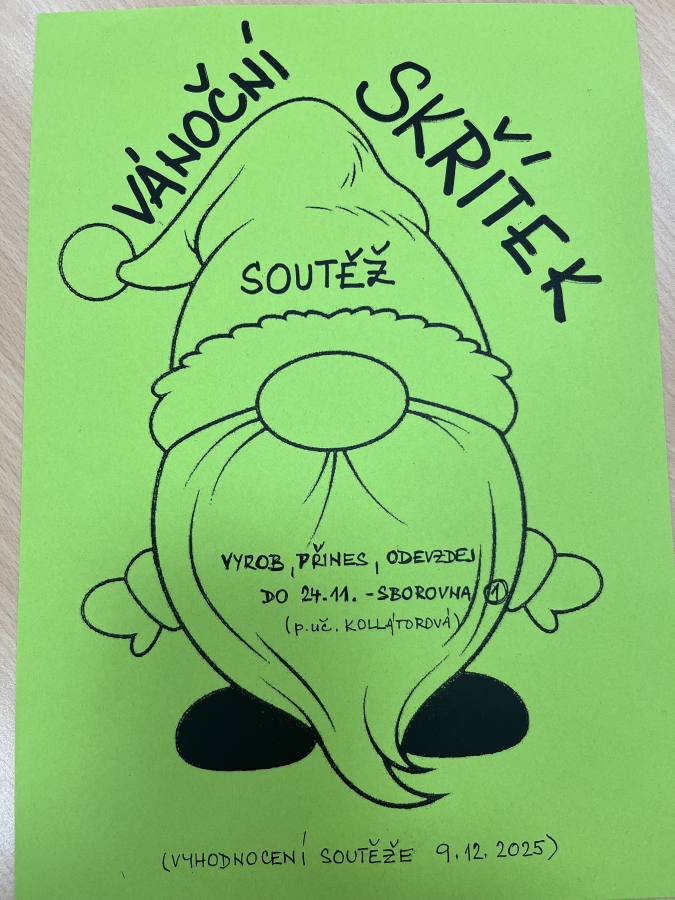 VÁNOČNÍ SKŘÍTEK
SOUTĚŽ
VYROB, PŘINES, ODEVZDEJ
DO 24.11. - SBOROVNA 1
(p.uč. KOLLÁTOROVÁ)
(VYHODNOCENÍ SOUTĚŽE 9.12.2025)